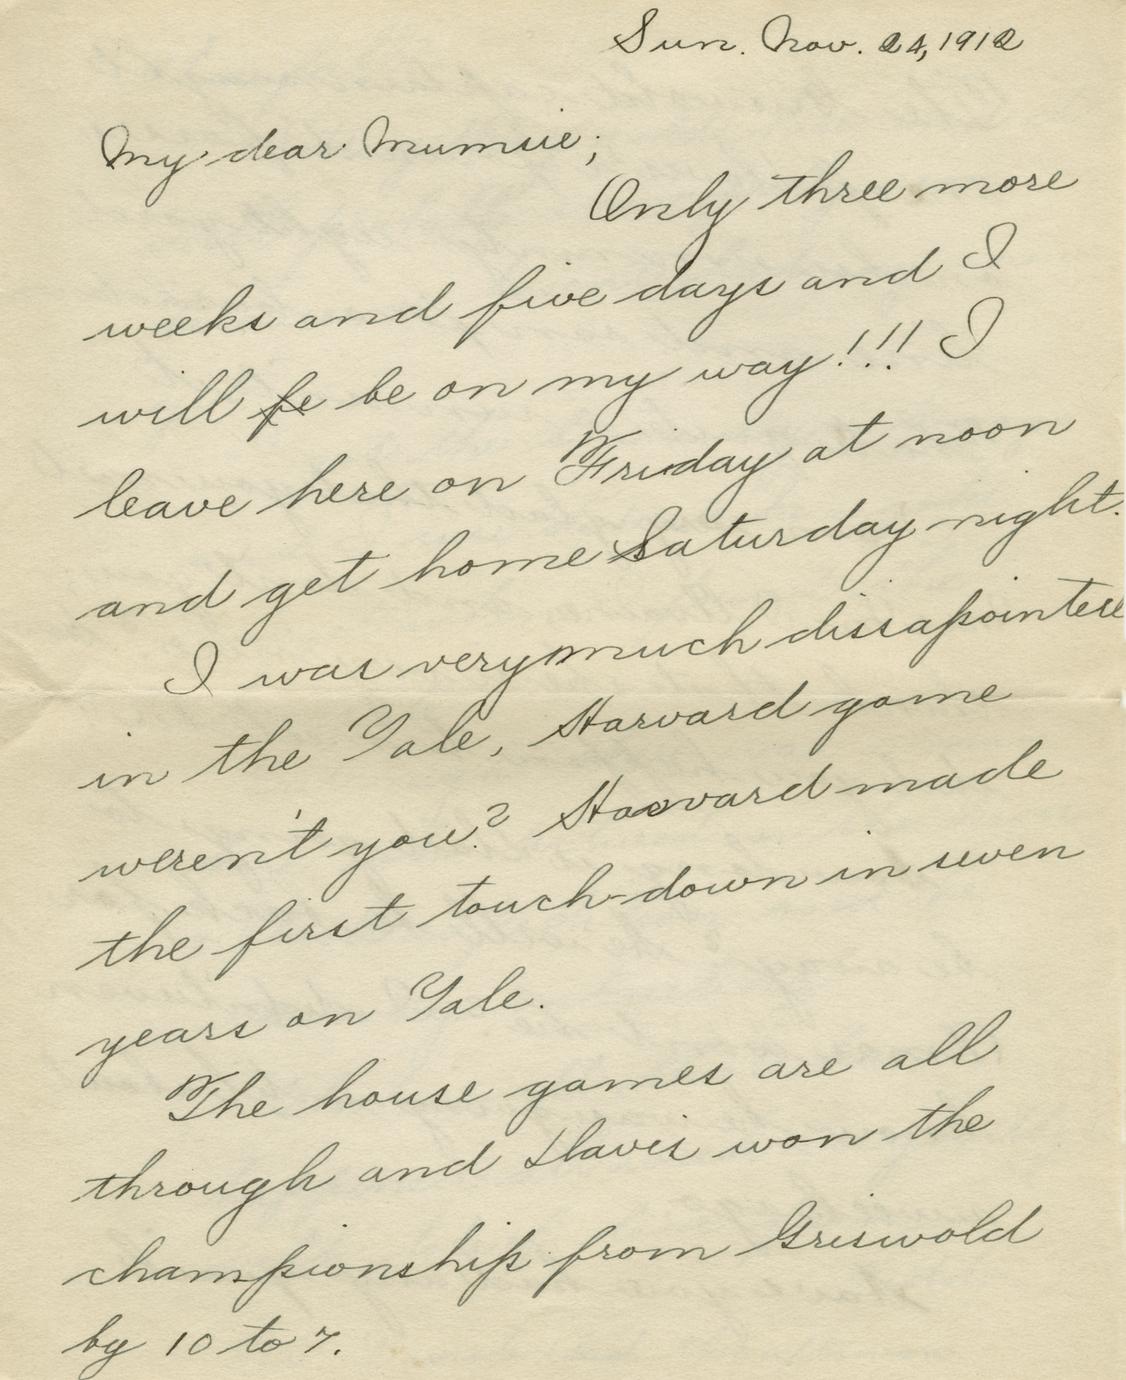 Sun. Nov. 24, 1912
My dear Mumsie;
Only three more
weeks and five days and I
will fe be on my way!!! I
leave here on Friday at noon
and get home Saturday night.
I was very much dissapointed
in the Yale, Harvard game
weren't you? Harvard made
the first touch-down in seven
years on Yale.
The house games are all
through and Davis won the
championship from Griswold
by 10 to 7.